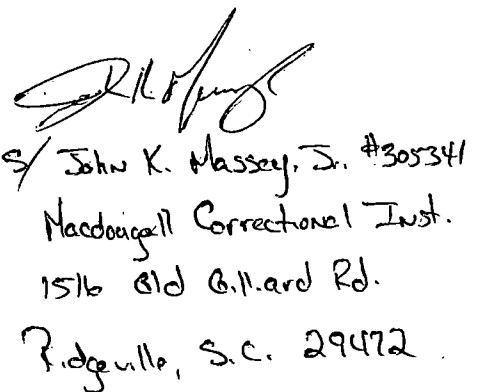 s/ John K. Massey, Jr. #305341
Macdougall Correctional Inst.
1516 Old Gilliard Rd.
Ridgeville, S.C. 29472